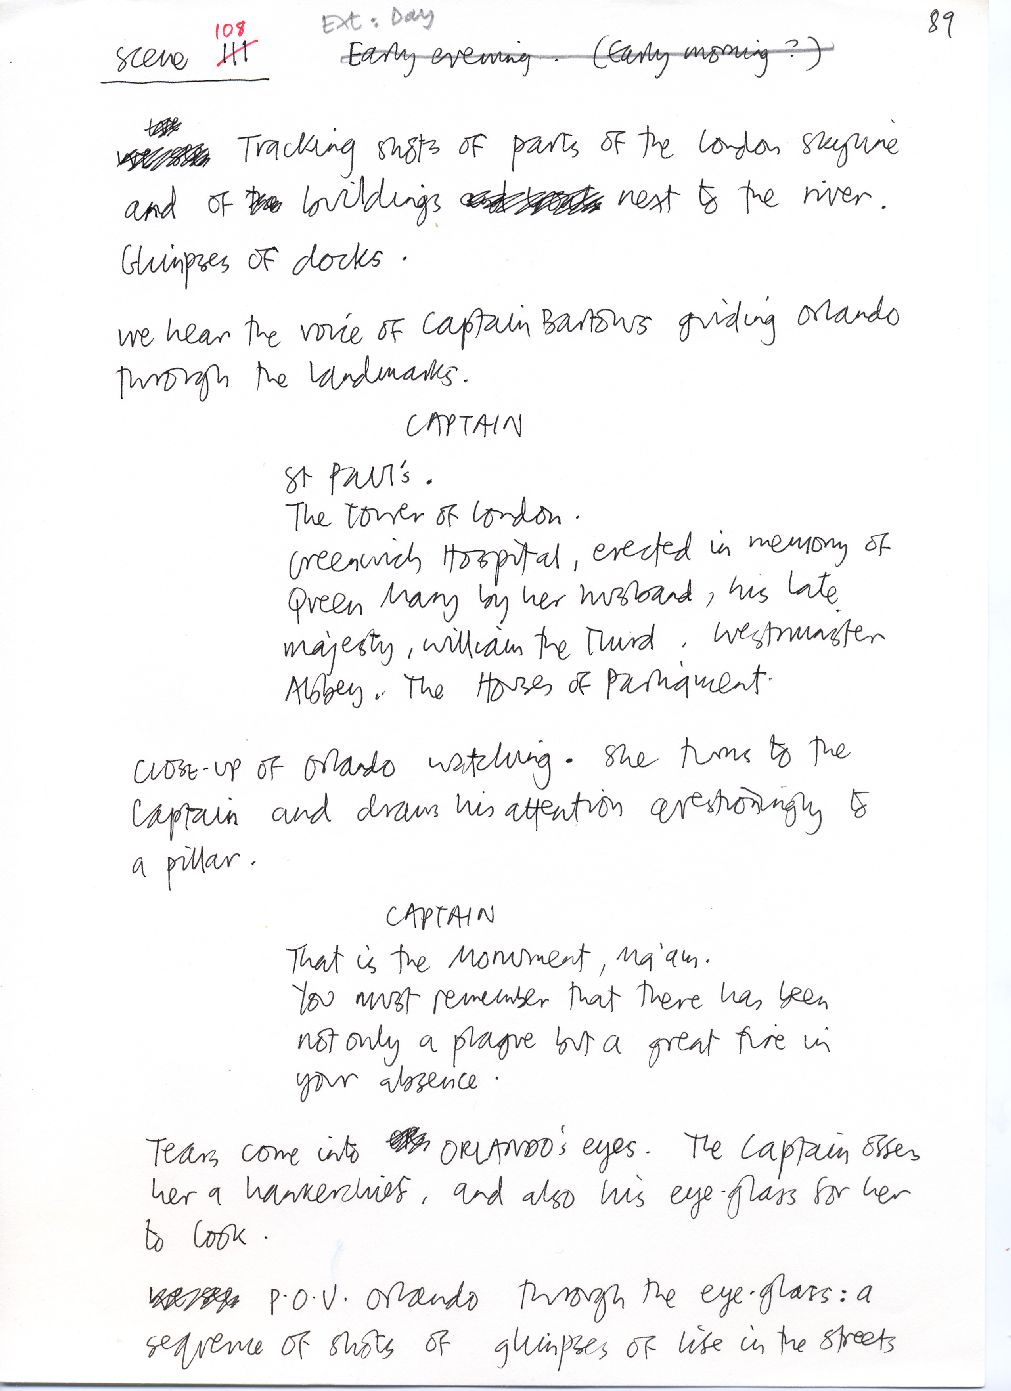 89
Ext: Day
108
Scene 111 Early evening. (Early morning?)
Tracking shots of parts of the London skyline
and of the buildings next to the river.
Glimpses of docks.
We hear the voice of Captain Bartolus guiding Orlando
through the landmarks.
CAPTAIN
St Paul's.
The Tower of London.
Greenwich Hospital, erected in memory of
Queen Mary by her husband, his late
majesty, William the Third. Westminster
Abbey. The Houses of Parliament.
CLOSE-UP of Orlando watching. She turns to the
Captain and draws his attention questioningly to
a pillar.
CAPTAIN
That is the Monument, Ma'am.
You must remember that there has been
not only a plague but a great fire in
your absence.
Tears come into ORLANDO's eyes. The Captain offers
her a hankerchief, and also his eye-glass for her
to look.
P.O.V. Orlando through the eye-glass: a
sequence of shots of glimpses of life in the streets